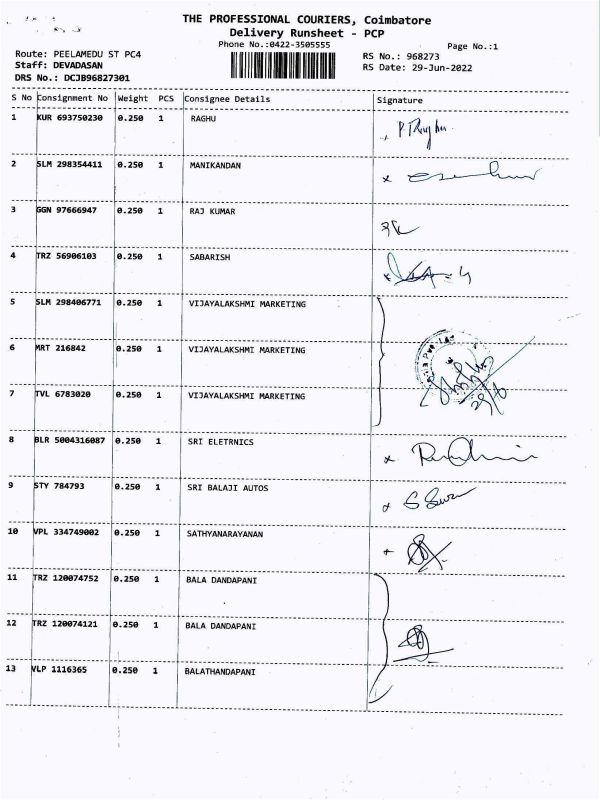 THE PROFESSIONAL COURIERS, Coimbatore
Delivery Runsheet - PCP
Phone No.:0422-3505555
Page No.:1
Route: PEELAMEDU ST PC4
RS No.: 968273
Staff: DEVADASAN
RS Date: 29-Jun-2022
DRS No.: DCJB96827301
S No Consignment No Weight PCS Consignee Details Signature
1 KUR 693750230 0.250 1 RAGHU
2 SLM 298354411 0.250 1 MANIKANDAN
3 GGN 97666947 0.250 1 RAJ KUMAR
4 TRZ 56906103 0.250 1 SABARISH
5 SLM 298406771 0.250 1 VIJAYALAKSHMI MARKETING
6 MRT 216842 0.250 1 VIJAYALAKSHMI MARKETING
7 TVL 6783020 0.250 1 VIJAYALAKSHMI MARKETING
29/6
8 BLR 5004316087 0.250 1 SRI ELETRNICS
9 STY 784793 0.250 1 SRI BALAJI AUTOS
10 VPL 334749002 0.250 1 SATHYANARAYANAN
11 TRZ 120074752 0.250 1 BALA DANDAPANI
12 TRZ 120074121 0.250 1 BALA DANDAPANI
13 VLP 1116365 0.250 1 BALATHANDAPANI